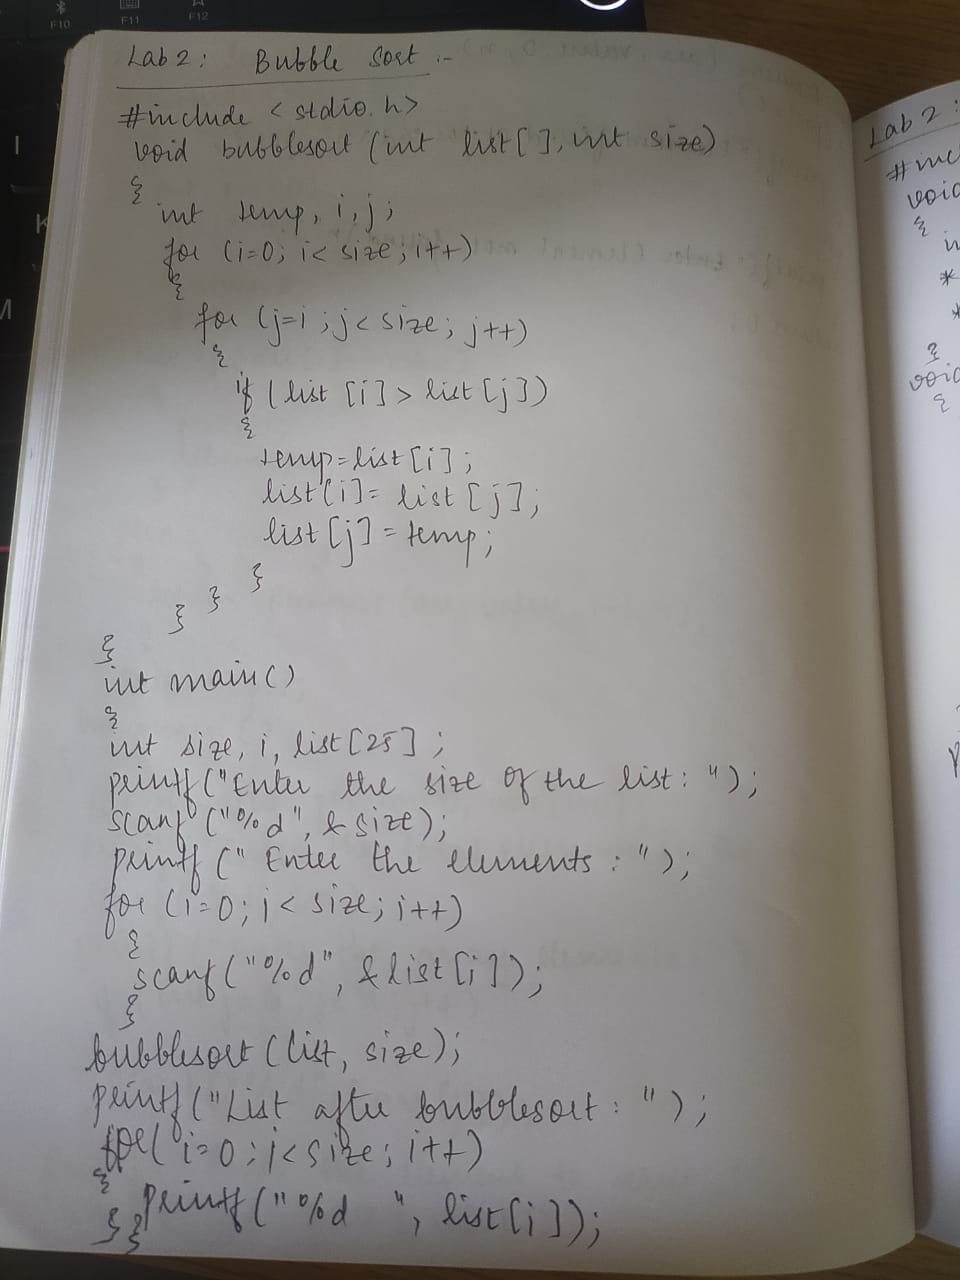 F10
F11
F12
Lab 2 : Bubble Sort :-
#include < stdio.h>
void bubblesort (int list[ ], int size)
{
int temp, i, j;
for (i=0; i< size; i++)
{
for (j=i ; j< size; j++)
{
if (list [i] > list [j])
{
temp=list [i];
list[i]= list [j];
list [j] = temp;
}
}
}
}
int main()
{
int size, i, list [25] ;
printf("Enter the size of the list: ");
scanf ("%d", & size);
printf (" Enter the elements : ");
for (i=0; i< size; i++)
{
scanf("%d", & list [i]);
}
bubblesort (list, size);
printf("List after bubblesort : ");
for( i=0 ; i< size; i++)
{
printf("%d ", list[i]);
} }
Lab 2 :
#inc
void
{
*
*
}
void
{